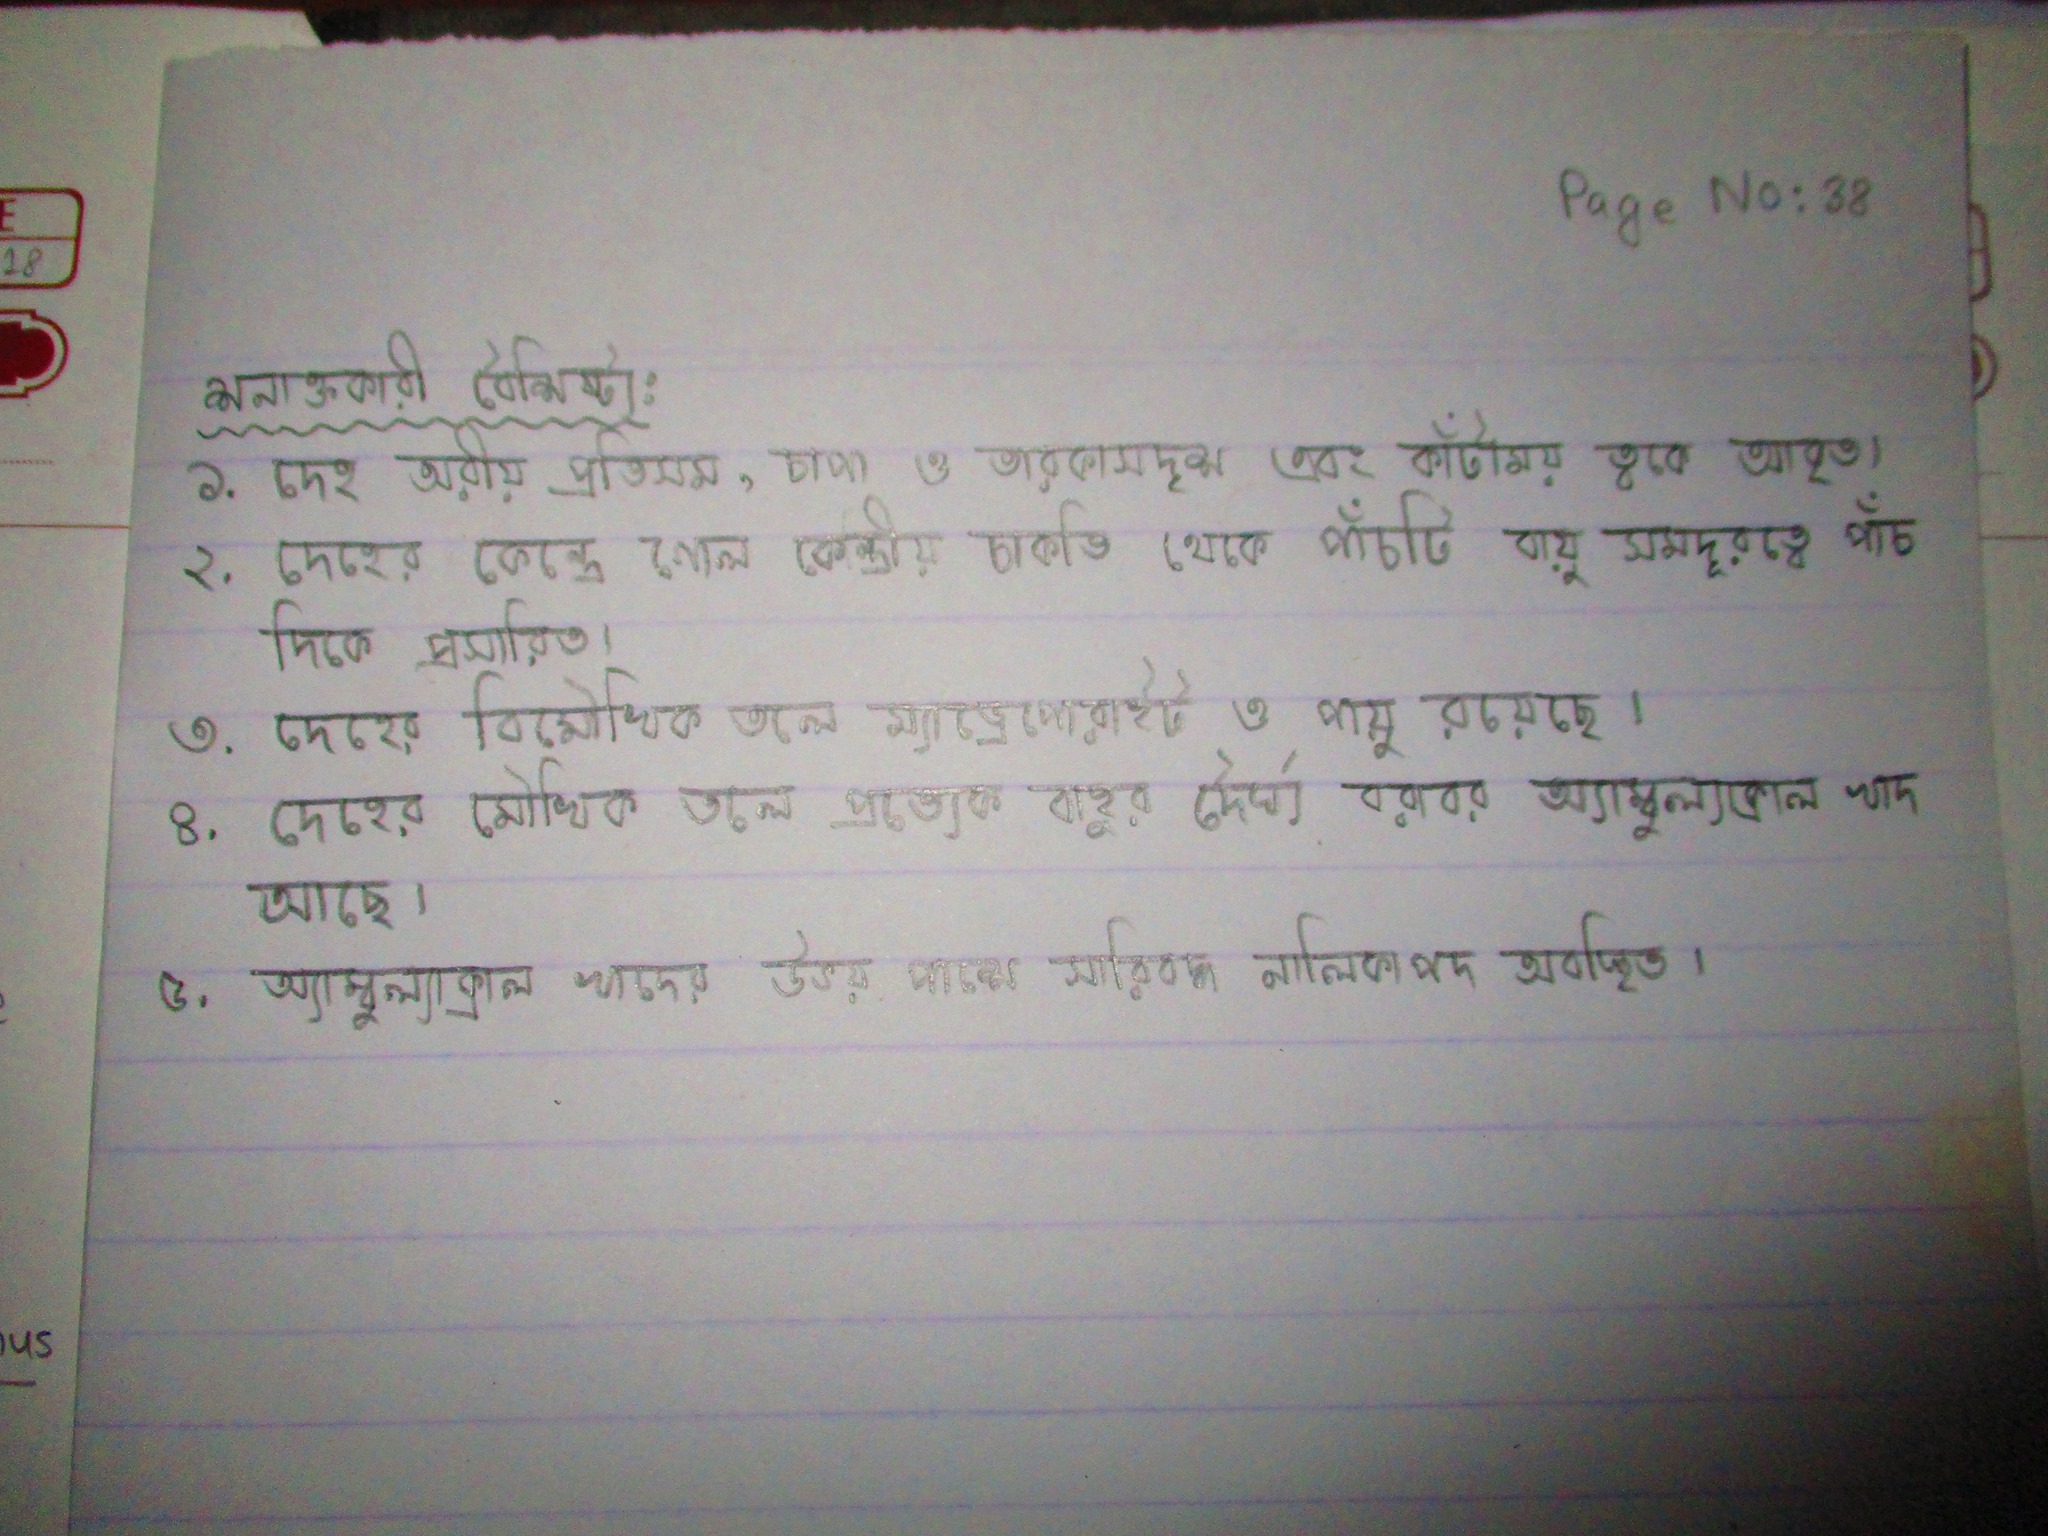 Page No: 38
E
18
শনাক্তকারী বৈশিষ্ট্য:
১. দেহ অরীয় প্রতিসম, চাপা ও তারকাসদৃশ এবং কাঁটাময় ত্বকে আবৃত।
২. দেহের কেন্দ্রে গোল কেন্দ্রীয় চাকতি থেকে পাঁচটি বায়ু সমদূরত্বে পাঁচ
দিকে প্রসারিত।
৩. দেহের বিমৌখিক তলে ম্যাড্রেপোরাইট ও পায়ু রয়েছে।
৪. দেহের মৌখিক তলে প্রত্যেক বাহুর দৈর্ঘ্য বরাবর অ্যাম্বুল্যাক্রাল খাদ
আছে।
৫. অ্যাম্বুল্যাক্রাল খাদের উভয় পাশে সারিবদ্ধ নালিকাপদ অবস্থিত।
ous